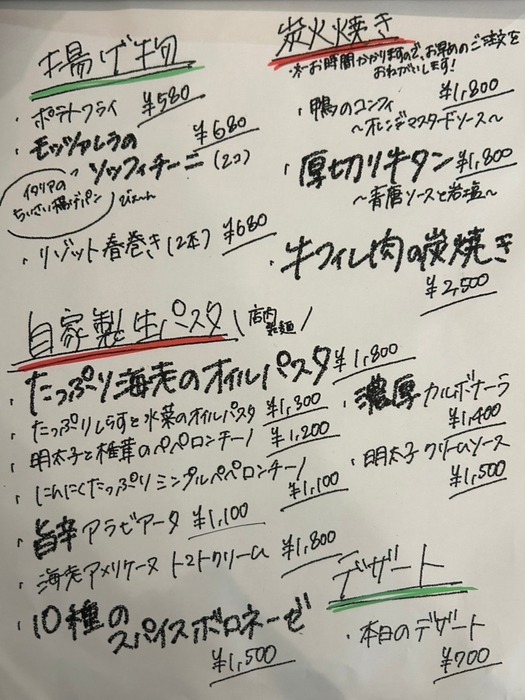 揚げ物
・ポテトフライ ¥580
・モッツァレラの ¥680
ゾッフィチーニ (2コ)
イタリアの
ちいさい揚げパン
・リゾット春巻き (2本) ¥680
炭火焼き
※お時間かかりますので、お早めのご注文を
おねがいします!
・鴨のコンフィ ¥1,800
〜オレンジマスタードソース〜
・厚切り牛タン ¥1,800
〜青唐ソースと岩塩〜
・牛フィレ肉の炭焼き
¥2,500
自家製生パスタ \店内製麺/
・たっぷり海老のオイルパスタ ¥1,800
・たっぷりしらすと水菜のオイルパスタ ¥1,300
・明太子と椎茸のペペロンチーノ ¥1,200
・にんにくたっぷりシンプルペペロンチーノ
¥1,100
・旨辛アラビアータ ¥1,100
・海老アメリケーヌ トマトクリーム ¥1,800
・10種の
スパイスボロネーゼ
¥1,500
・濃厚カルボナーラ
¥1,400
・明太子クリームソース
¥1,500
デザート
・本日のデザート
¥700